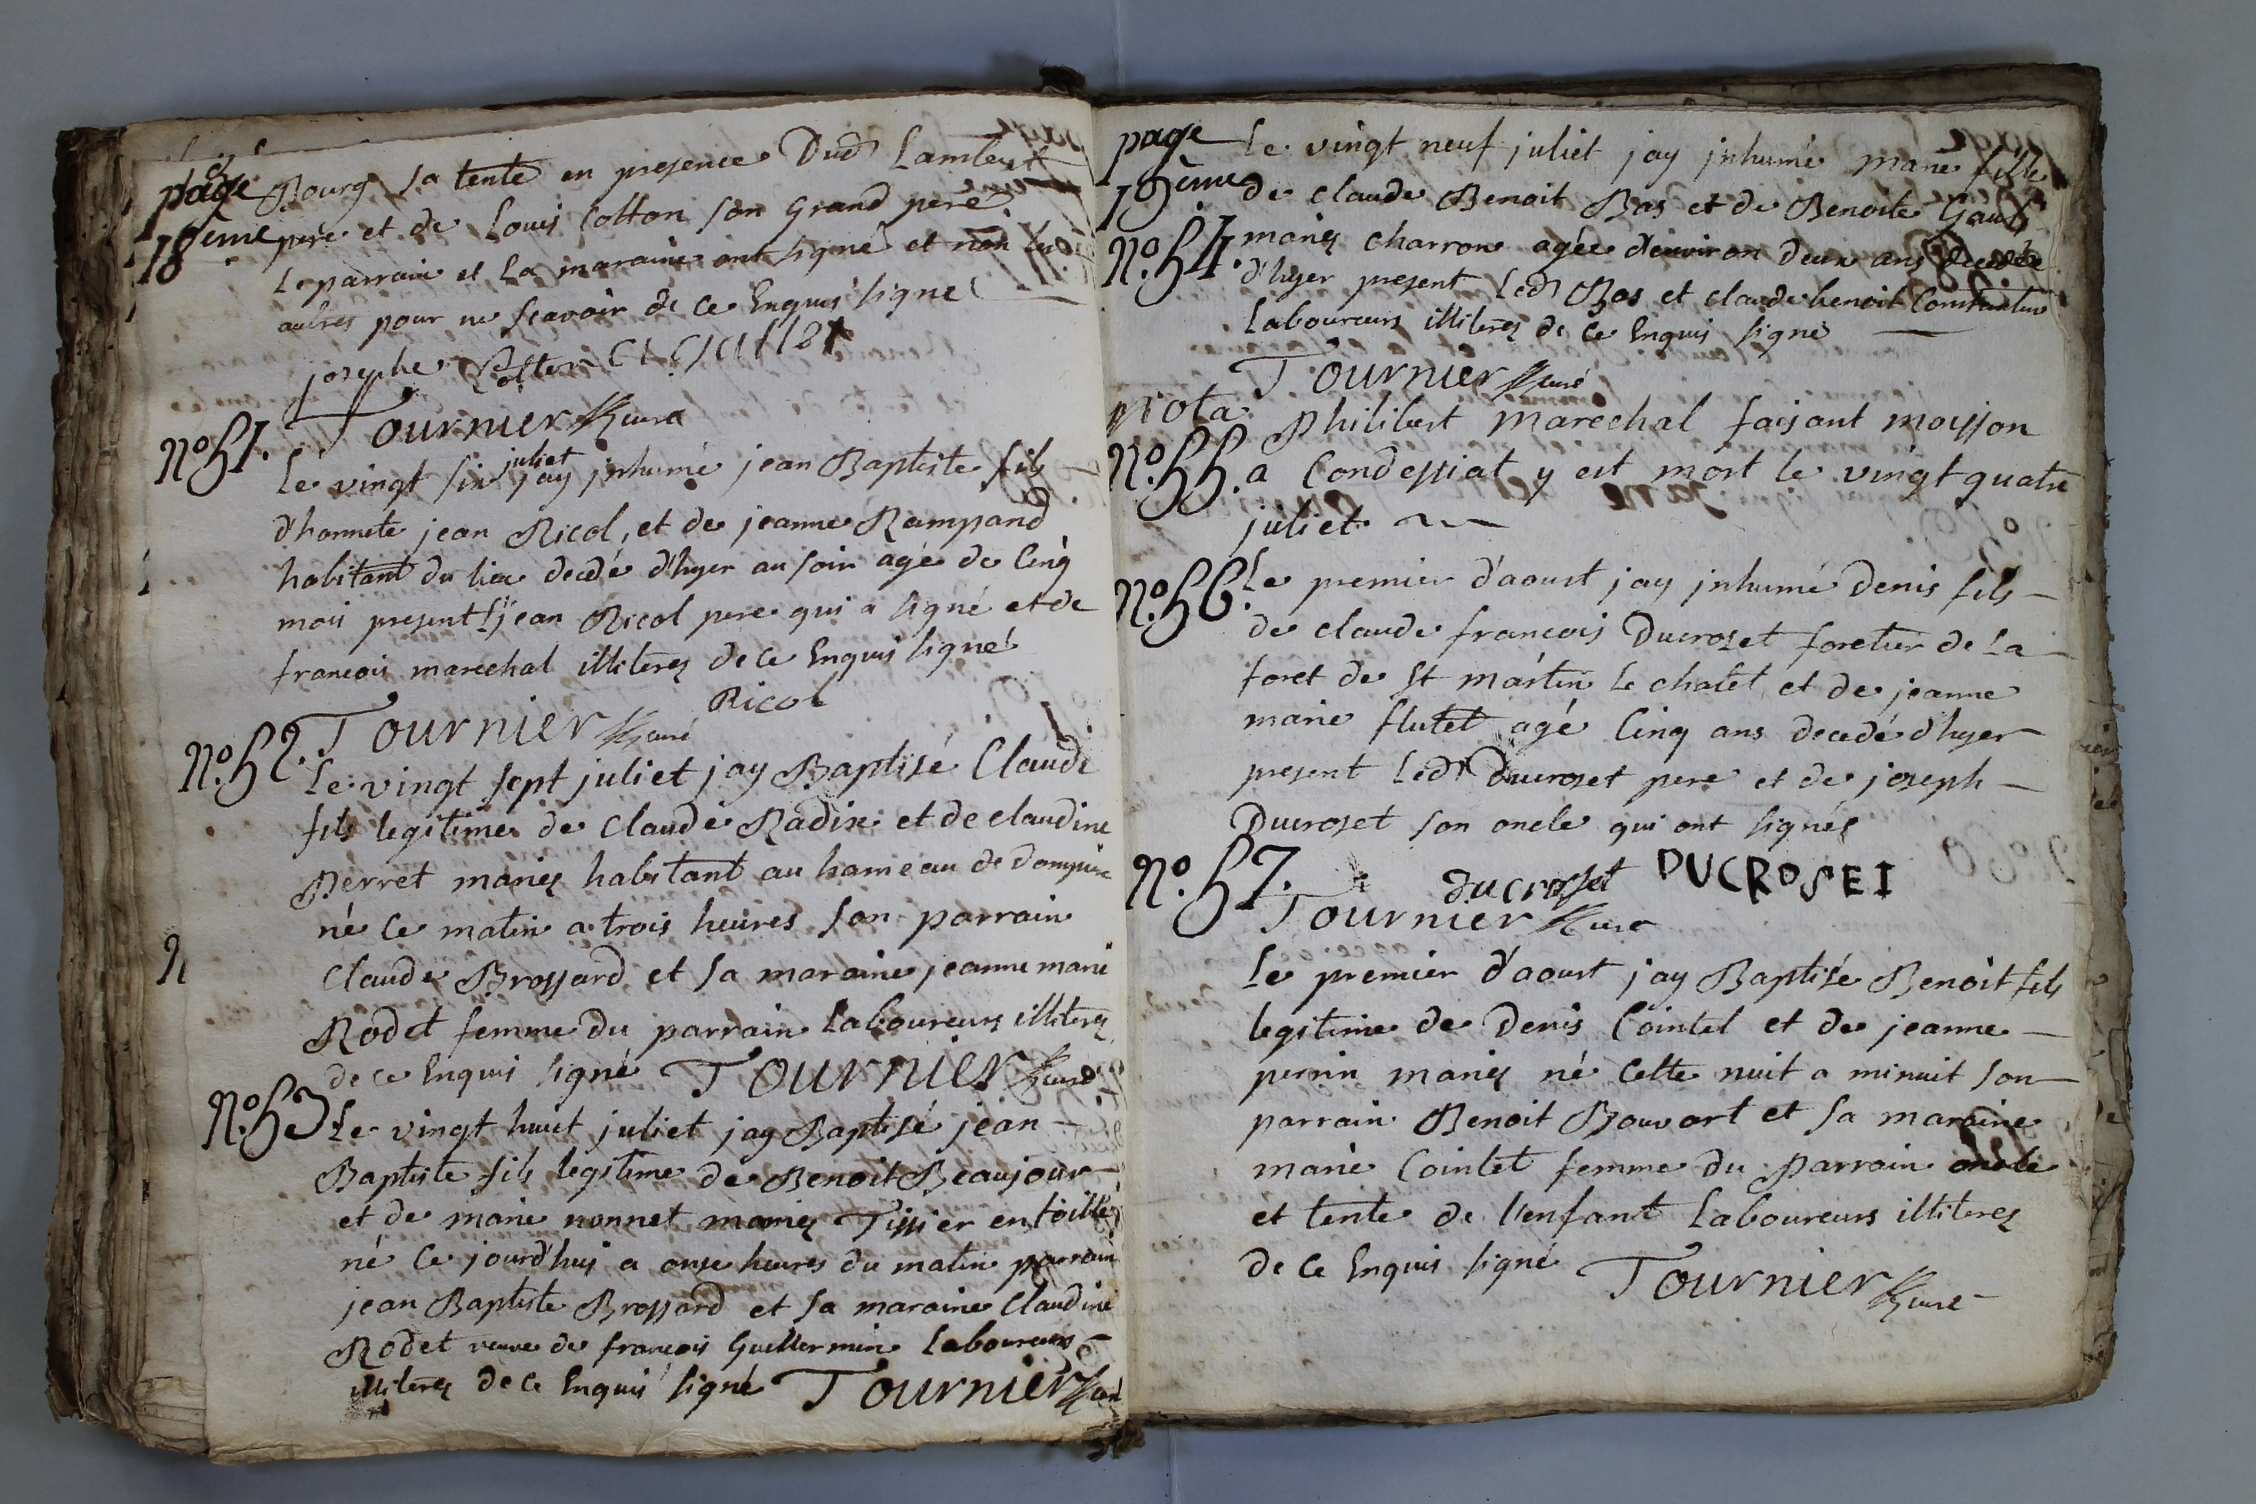 page
18eme
Bourg sa tente en presence Dud Lambert
pere et de Louis Cotton son Grand pere
Le parrain et La maraine ont signé et non les
autres pour ne scavoir de ce Enquis signé
josephe Cotton
Tournier curé
No. 51.
Le vingt six juliet jay jnhumé jean Baptiste fils
d'honnete jean Ricol, et de jeanne Rampand
habitant du lieu decdé d'hyer au soir agé de Cinq
mois present Sr jean Ricol pere qui a signé et de
francois marechal illiterez de ce Enquis signé
Ricol
Tournier curé
No. 52.
Le vingt sept juliet jay Baptisé Claude
fils legitime de Claude Radix et de claudine
Perret mariez habitant au hameau de
né Ce matin a trois heures son parrain
Claude Brossard et sa maraine jeanne marie
Rodet femme du parrain Laboureurs illiterez
de ce Enquis signé Tournier curé
No. 53
Le vingt huit juliet jay Baptisé jean
Baptiste fils legitime de Benoit Beaujour
et de marie nonnet mariez Tissier en toille
né Ce jourd'huy a onse heures du matin parrain
jean Baptiste Brossard et sa maraine Claudine
Rodet veuve de francois Guillermin Laboureurs
illiterez de Ce Enquis signé Tournier curé
page
19eme
Le vingt neuf juliet jay jnhumé marie fille
de claude Benoit Bas et de Benoite
No. 54.
mariez charron agée d'environ deux ans decedée
d'hyer present Led Bas et claude benoit
Laboureurs illiterez de Ce Enquis signé
Tournier curé
nota
Philibert marechal faisant moisson
No. 55.
a Condessiat y est mort le vingt quatre
juliet
No. 56.
Le premier d'aoust jay jnhumé Denis fils
de claude francois Ducroset foretier de La
foret de St martin Le chatel et de jeanne
marie flutet agé Cinq ans decedé d'hyer
present Led Ducroset pere et de joseph
Ducroset son oncle qui ont signés
ducroset DUCROSEI
Tournier curé
No. 57.
Le premier d'aoust jay Baptisé Benoit fils
legitime de Denis Cointet et de jeanne
perrin mariez né Cette nuit a minuit son
parrain Benoit Bouvart et sa maraine
marie Cointet femme du parrain oncle
et tente de l'enfant Laboureurs illiterez
de Ce Enquis signé Tournier curé